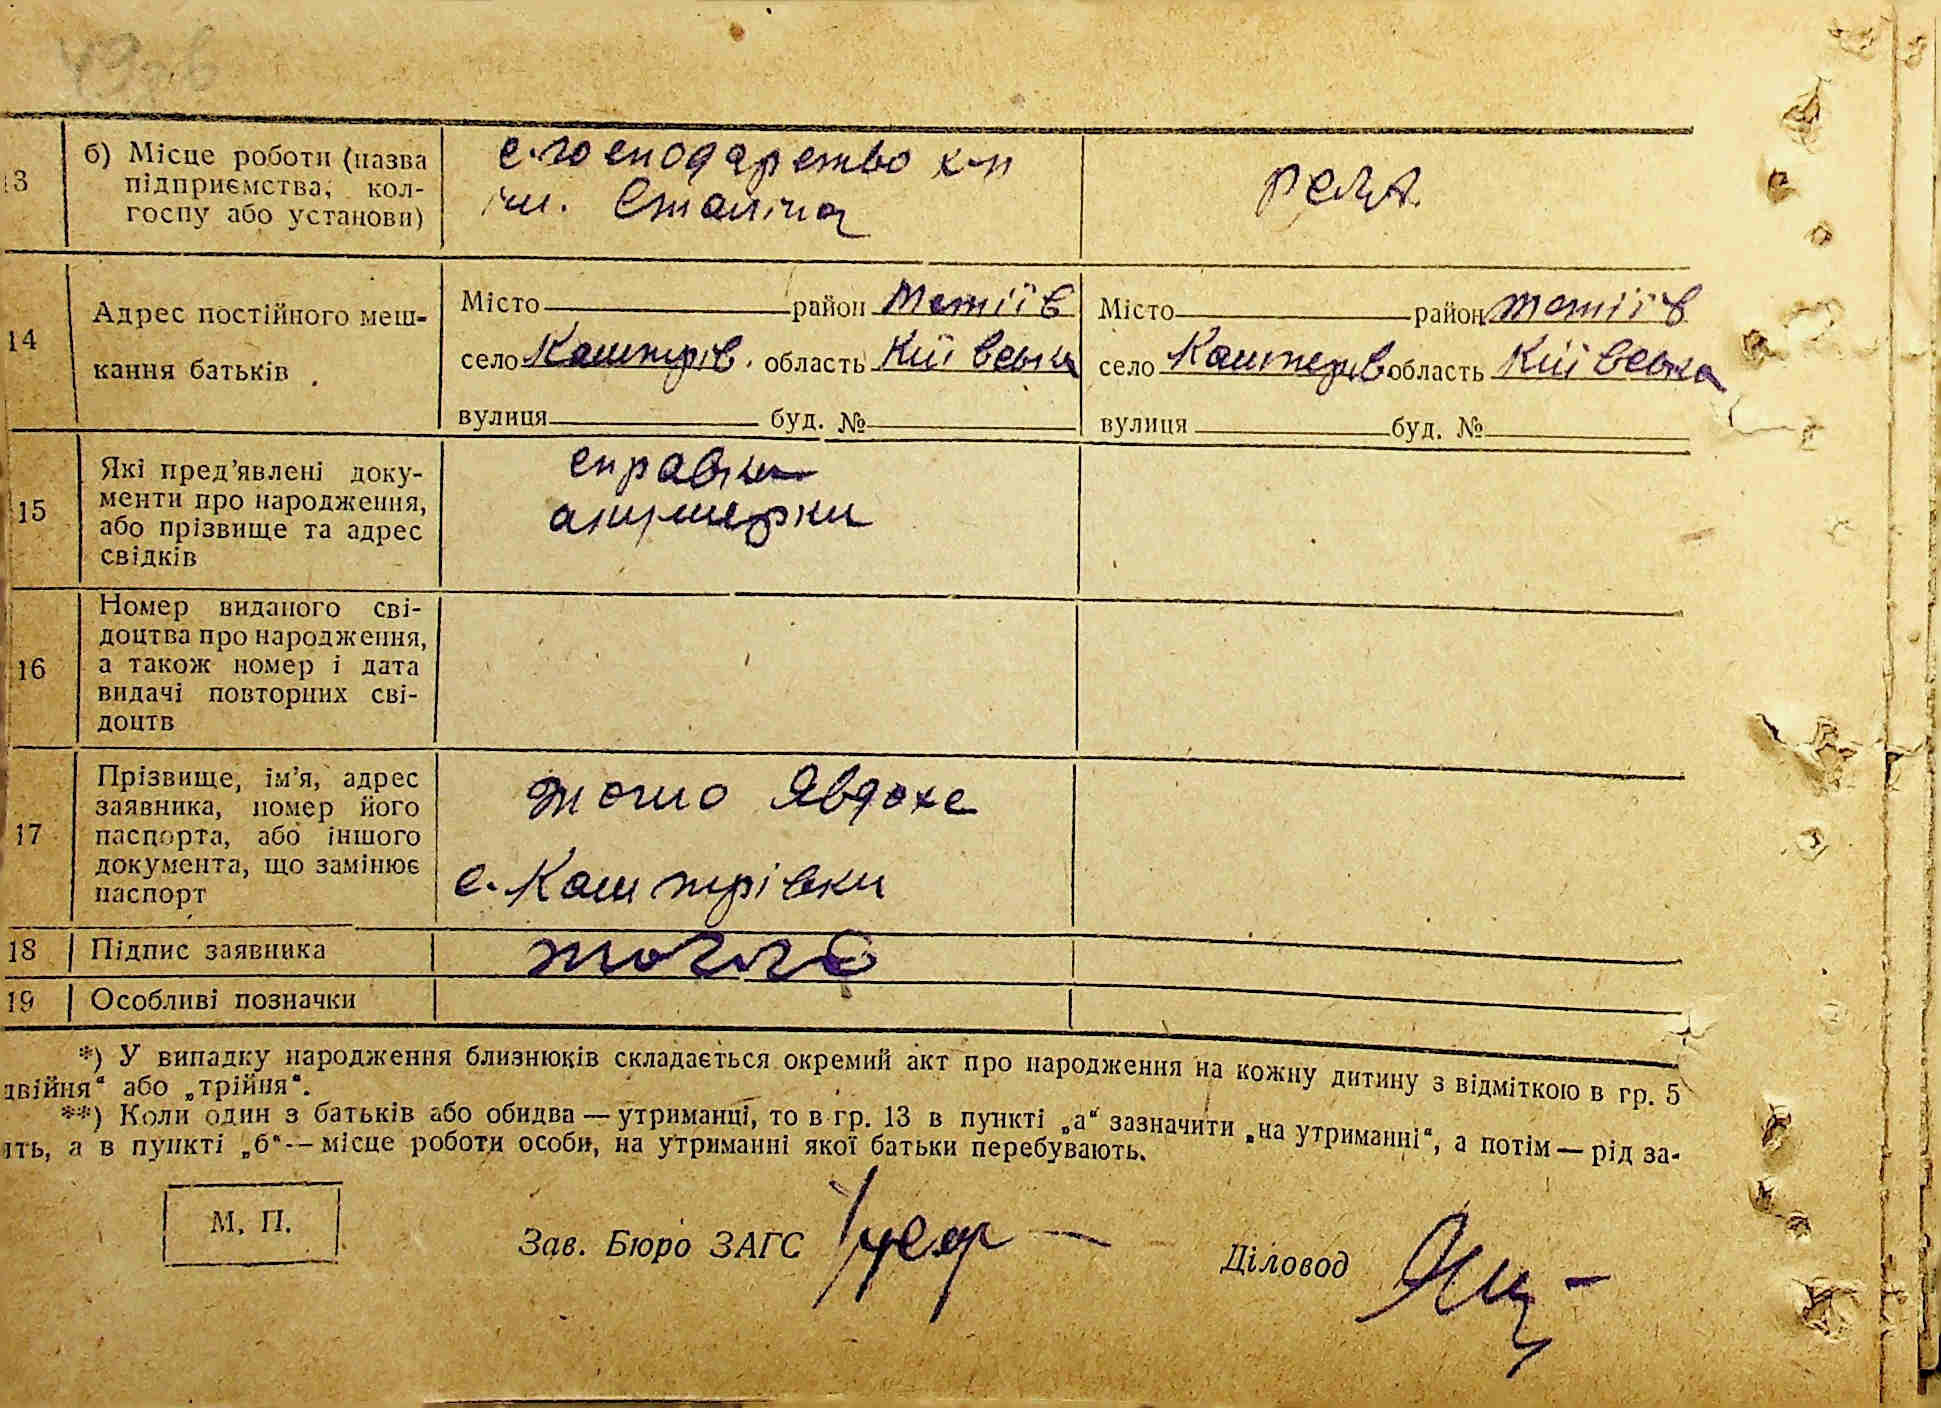 13
б) Місце роботи (назва
підприємства, кол-
госпу або установи)
с. господарство к-п
ім. Сталіна
14
Адрес постійного меш-
кання батьків
Місто район Тетіїв
село Каштрів. область Київська
вулиця буд. №
Місто район Тетіїв
село область Київська
вулиця буд. №
15
Які пред’явлені доку-
менти про народження,
або прізвище та адрес
свідків
справка
акушерки
16
Номер виданого сві-
доцтва про народження,
а також номер і дата
видачі повторних сві-
доцтв
17
Прізвище, ім’я, адрес
заявника, номер його
паспорта, або іншого
документа, що замінює
паспорт
Явдохе
с. Каштрівки
18 Підпис заявника
19 Особливі позначки
*) У випадку народження близнюків складається окремий акт про народження на кожну дитину з відміткою в гр. 5
двійня“ або „трійня“.
**) Коли один з батьків або обидва — утриманці, то в гр. 13 в пункті „а“ зазначити „на утриманні“, а потім — рід за-
ять, а в пункті „б“ — місце роботи особи, на утриманні якої батьки перебувають.
М. П.
Зав. Бюро ЗАГС
Діловод